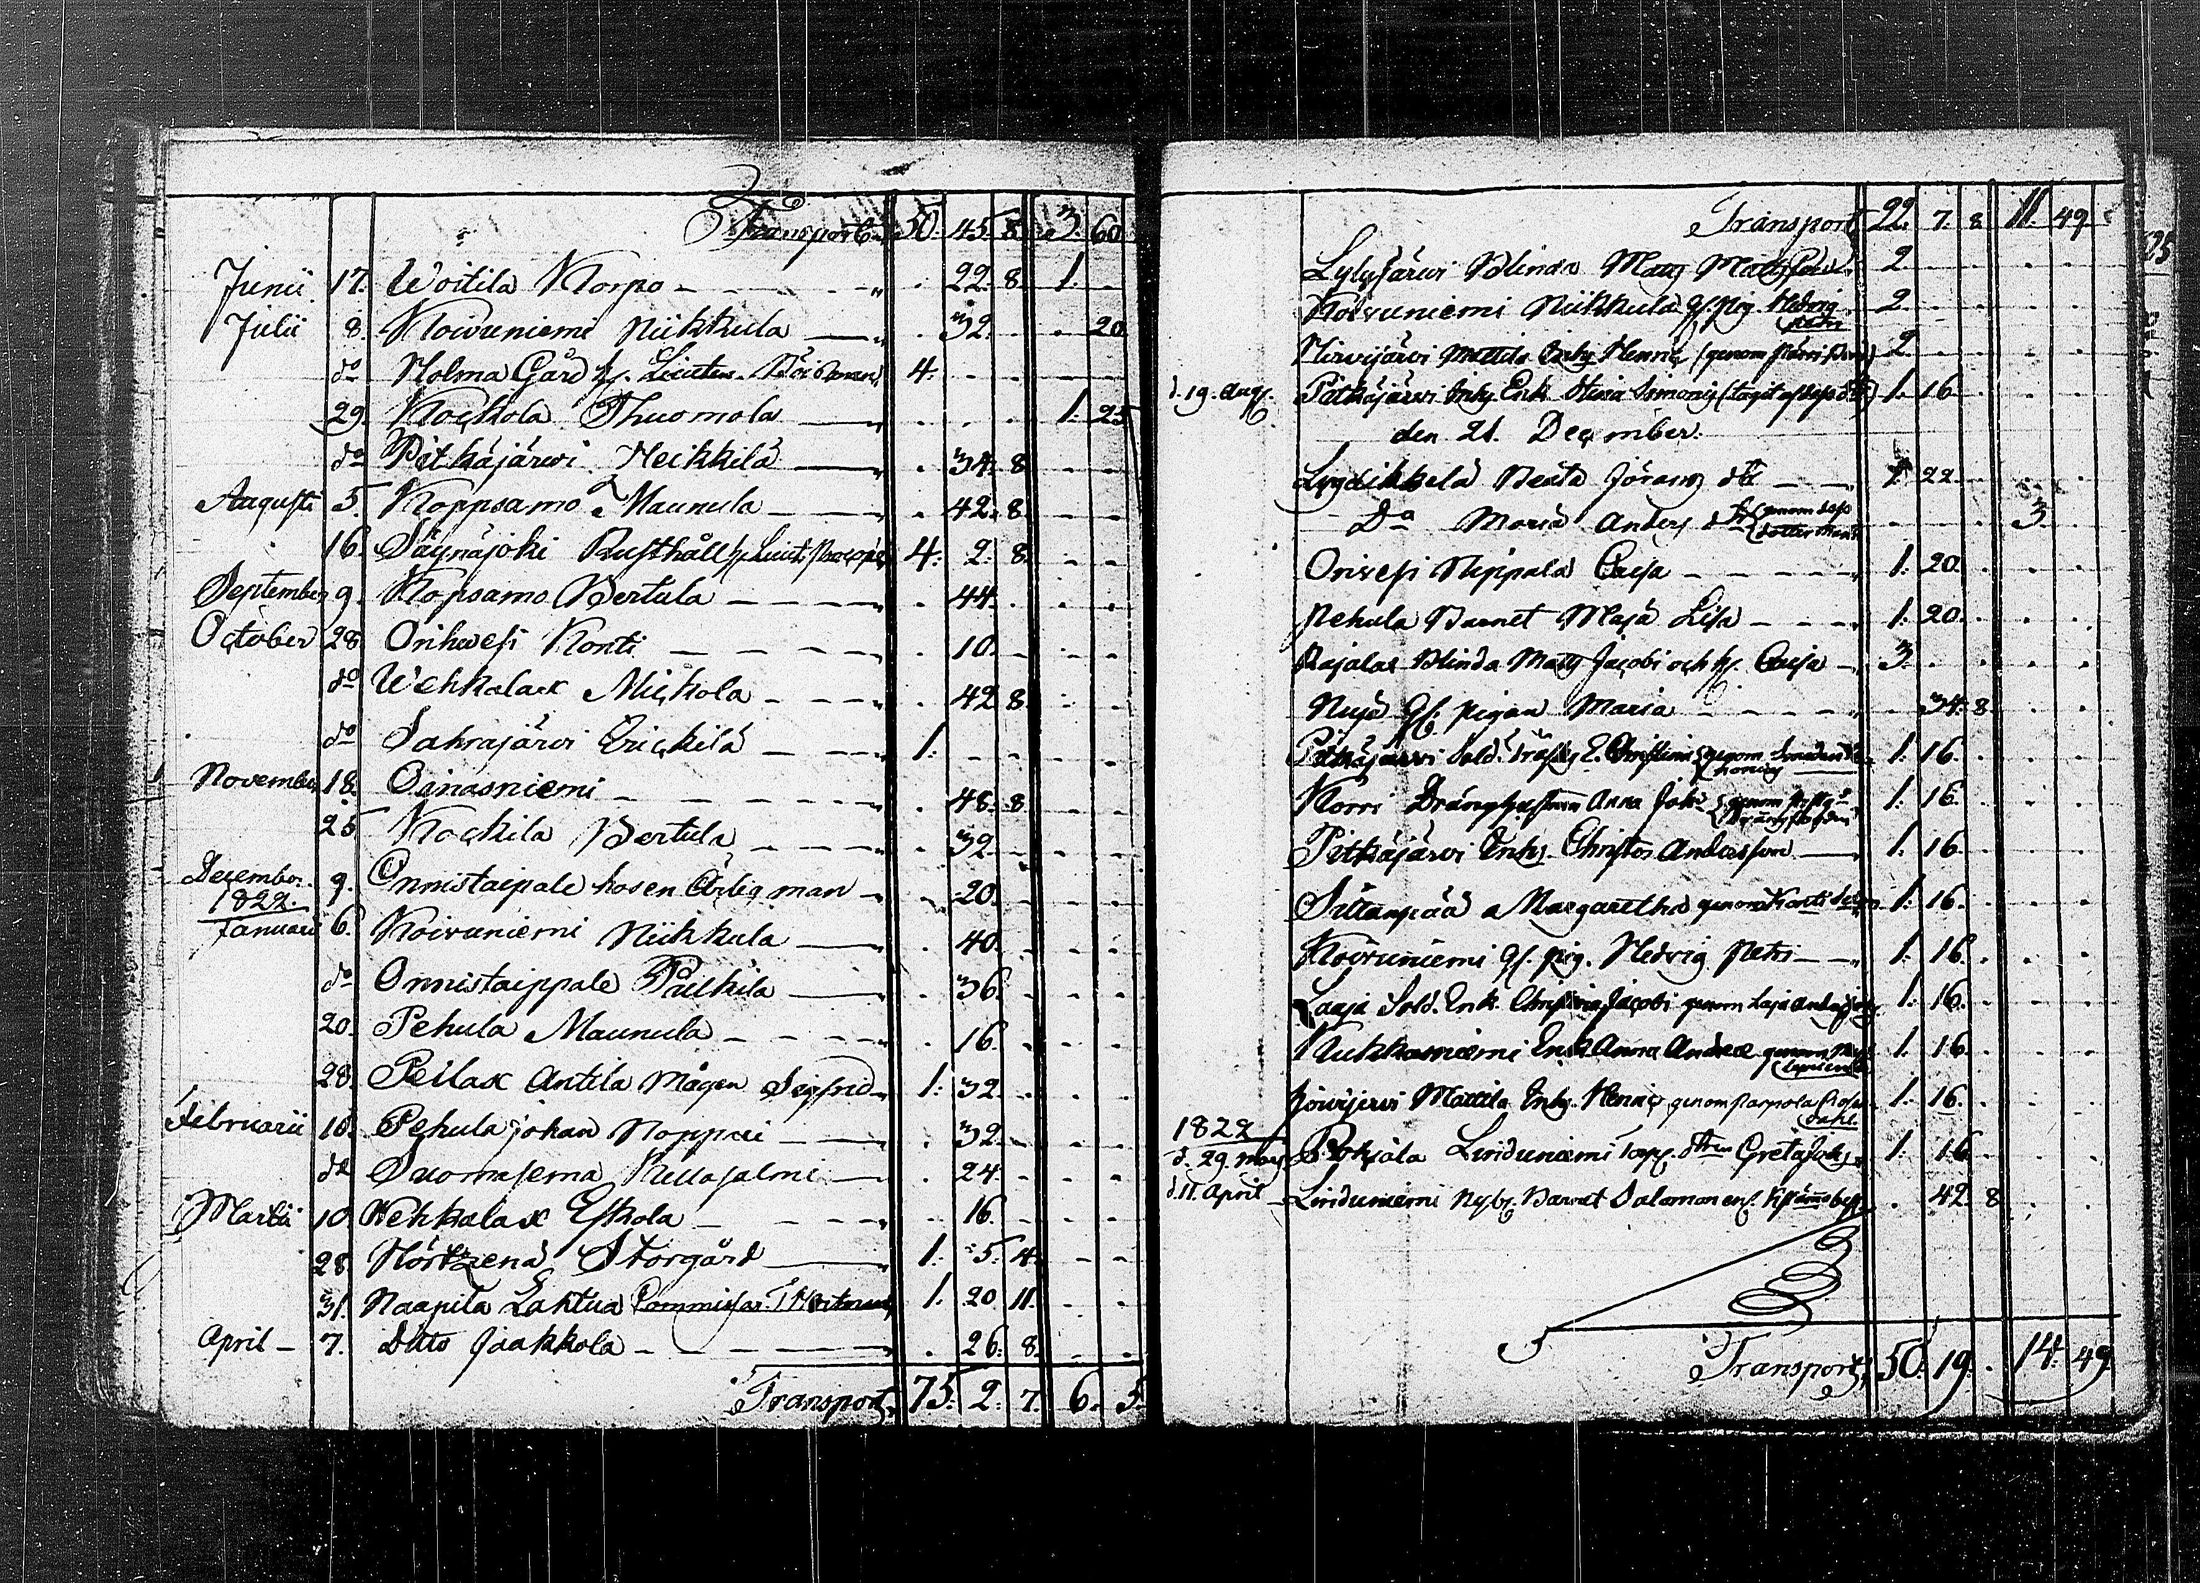 Transport 50. 45. 8. 3. 60.
Junii 17. Woitila Korpo 22. 8. 1.
Julii 8. Koivuniemi Nikkula 32. 20.
do Holma Gård 4.
29. Kockola Thuomola 1. 25
do Pitkäjärvi Heikkilä 34. 8
Augusti 5. Koppsamo Maunula 42. 8
16. Säynäjoki Rusthåll 4. 2. 8.
September 9. Kopsamo Bertula 44.
October 28. Orihwesi Konti 10.
do Wehkalax Mickola 42. 8.
do Sahrajärvi Erickilä 1.
November 18. Oinasniemi 48. 8
25 Kockila Bertula 32.
December 9. Onnistaipale hosen Ärlig man 20.
1822.
Januarii 6. Koivuniemi Nikkula 40.
do Onnistaippale Pälkilä 36.
20. Pehula Maunula 16.
28. Peilax Antila Mågen Sigfrid 1. 32.
Februarii 10. Pehula Johan Noppari 32.
do Suomasema 24.
Martii 10 Wehkalax Eskola 16.
28 Storgård 1. 5. 4.
31. Naapila Lahtua 1. 20. 11.
April 7. Ditto Jaakkola 26. 8.
Transport 75. 2. 7. 6. 5.
Transport 22. 7. 8. 11. 49.
Lylyjärvi Blinda Matts 2.
Koivuniemi Nikkula Qf. Pig. Hedvig Petri 2.
Hirvijärvi Mattila Enkl. Henric (genom 2.
d. 19. Aug. Pitkäjärvi Enk. Stina Simonis 1. 16.
den 21. December.
Beata Jörans dtr 1. 22.
Do Maria Anders dtr genom dess dotter Maria 3.
Orivesi Nippala Caisa 1. 20.
Pehula Barnet Maja Lisa 1. 20.
Rajalax Blinda Matts Jacobi och Caisa 3.
Qf. pigan Maria 34. 8.
Pitkäjärvi Sold. E. Christina genom 1. 16.
Korri Anna Joh. genom 1. 16.
Pitkäjärvi Enkl. Christer Andersson 1. 16.
Sillanpää Margaretha genom 1. 16.
Koivuniemi Qf. Pig. Hedvig Petri 1. 16.
Laaja Sold. Enk. Christina Jacobi genom 1. 16.
Kukkasniemi Enk. Anna Andreæ genom 1. 16.
Mattila Enkl. Henric genom 1. 16.
1822
d. 29. May Pohjala Linduniemi Torp. Greta Joh. 1. 16.
d. 11. April Linduniemi Barnet Salomon 42. 8
Transport 50. 19. 14. 49